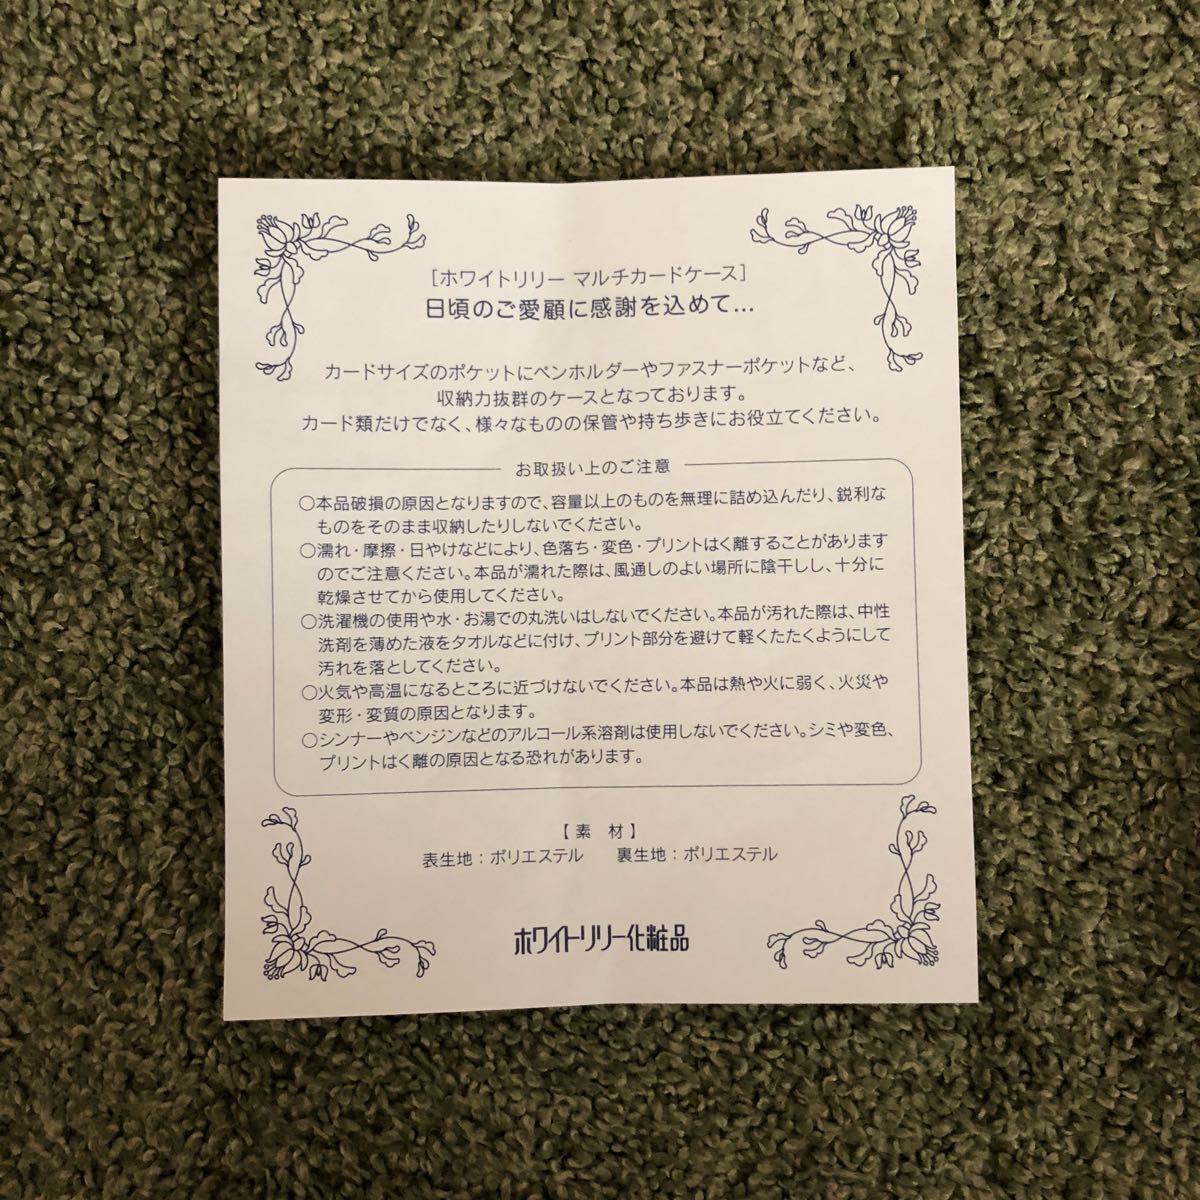 ［ホワイトリリー マルチカードケース］
日頃のご愛顧に感謝を込めて…
カードサイズのポケットにペンホルダーやファスナーポケットなど、
収納力抜群のケースとなっております。
カード類だけでなく、様々なものの保管や持ち歩きにお役立てください。
お取扱い上のご注意
○本品破損の原因となりますので、容量以上のものを無理に詰め込んだり、鋭利な
ものをそのまま収納したりしないでください。
○濡れ・摩擦・日やけなどにより、色落ち・変色・プリントはく離することがあります
のでご注意ください。本品が濡れた際は、風通しのよい場所に陰干しし、十分に
乾燥させてから使用してください。
○洗濯機の使用や水・お湯での丸洗いはしないでください。本品が汚れた際は、中性
洗剤を薄めた液をタオルなどに付け、プリント部分を避けて軽くたたくようにして
汚れを落としてください。
○火気や高温になるところに近づけないでください。本品は熱や火に弱く、火災や
変形・変質の原因となります。
○シンナーやベンジンなどのアルコール系溶剤は使用しないでください。シミや変色、
プリントはく離の原因となる恐れがあります。
【素 材】
表生地：ポリエステル　裏生地：ポリエステル
ホワイトリリー化粧品